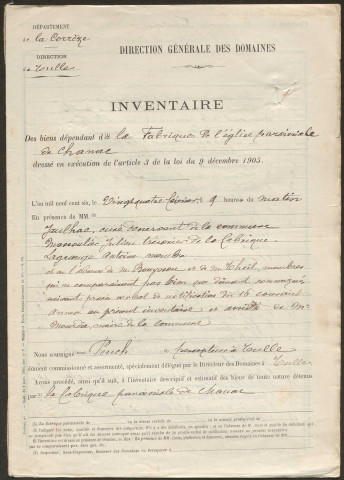 DÉPARTEMENT
de la Corrèze
DIRECTION
de Tulle
DIRECTION GÉNÉRALE DES DOMAINES
INVENTAIRE
Des biens dépendant d la Fabrique de l'église paroissiale
de Chanac
dressé en exécution de l'article 3 de la loi du 9 décembre 1905.
L'an mil neuf cent six, le vingt quatre février 9 heures du matin
En présence de MM.
Jaulhac, curé desservant de la commune
Julien trésorier de la fabrique
Lagrange Antoine membre
et en l'absence de M et de M Theil, membres
qui ne comparaissent pas bien que dûment convoqués
suivant procès verbal de notification du 16 courant
annexé au présent inventaire et assisté de M.
maire de la commune
Nous soussigné Perich percepteur à Tulle
dûment commissionné et assermenté, spécialement délégué par le Directeur des Domaines à Tulle
Avons procédé, ainsi qu'il suit, à l'inventaire descriptif et estimatif des biens de toute nature détenus
par la fabrique paroissiale de Chanac